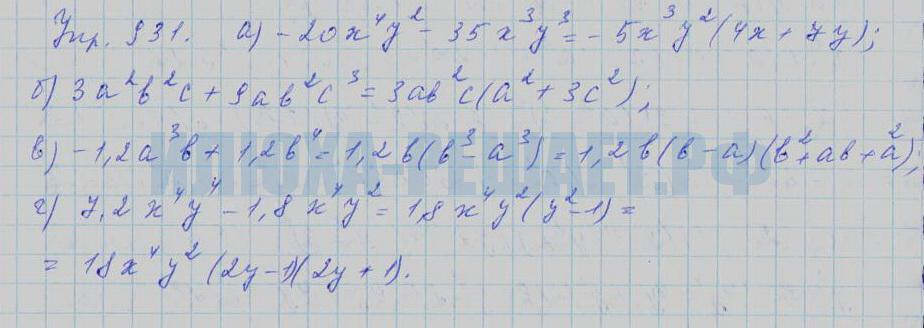 Упр. 931. а) -20x⁴y² - 35x³y³ = -5x³y²(4x + 7y);
б) 3a²b²c + 9ab²c³ = 3ab²c(a² + 3c²);
в) -1,2a³b + 1,2b⁴ = 1,2b(b³ - a³) = 1,2b(b-a)(b² + ab + a²);
ИЛЮХА-РЕШАЕТ.РФ
г) 7,2x⁴y⁴ - 1,8x⁴y² = 1,8x⁴y²(y² - 1) =
= 18x⁴y²(2y-1)(2y+1).